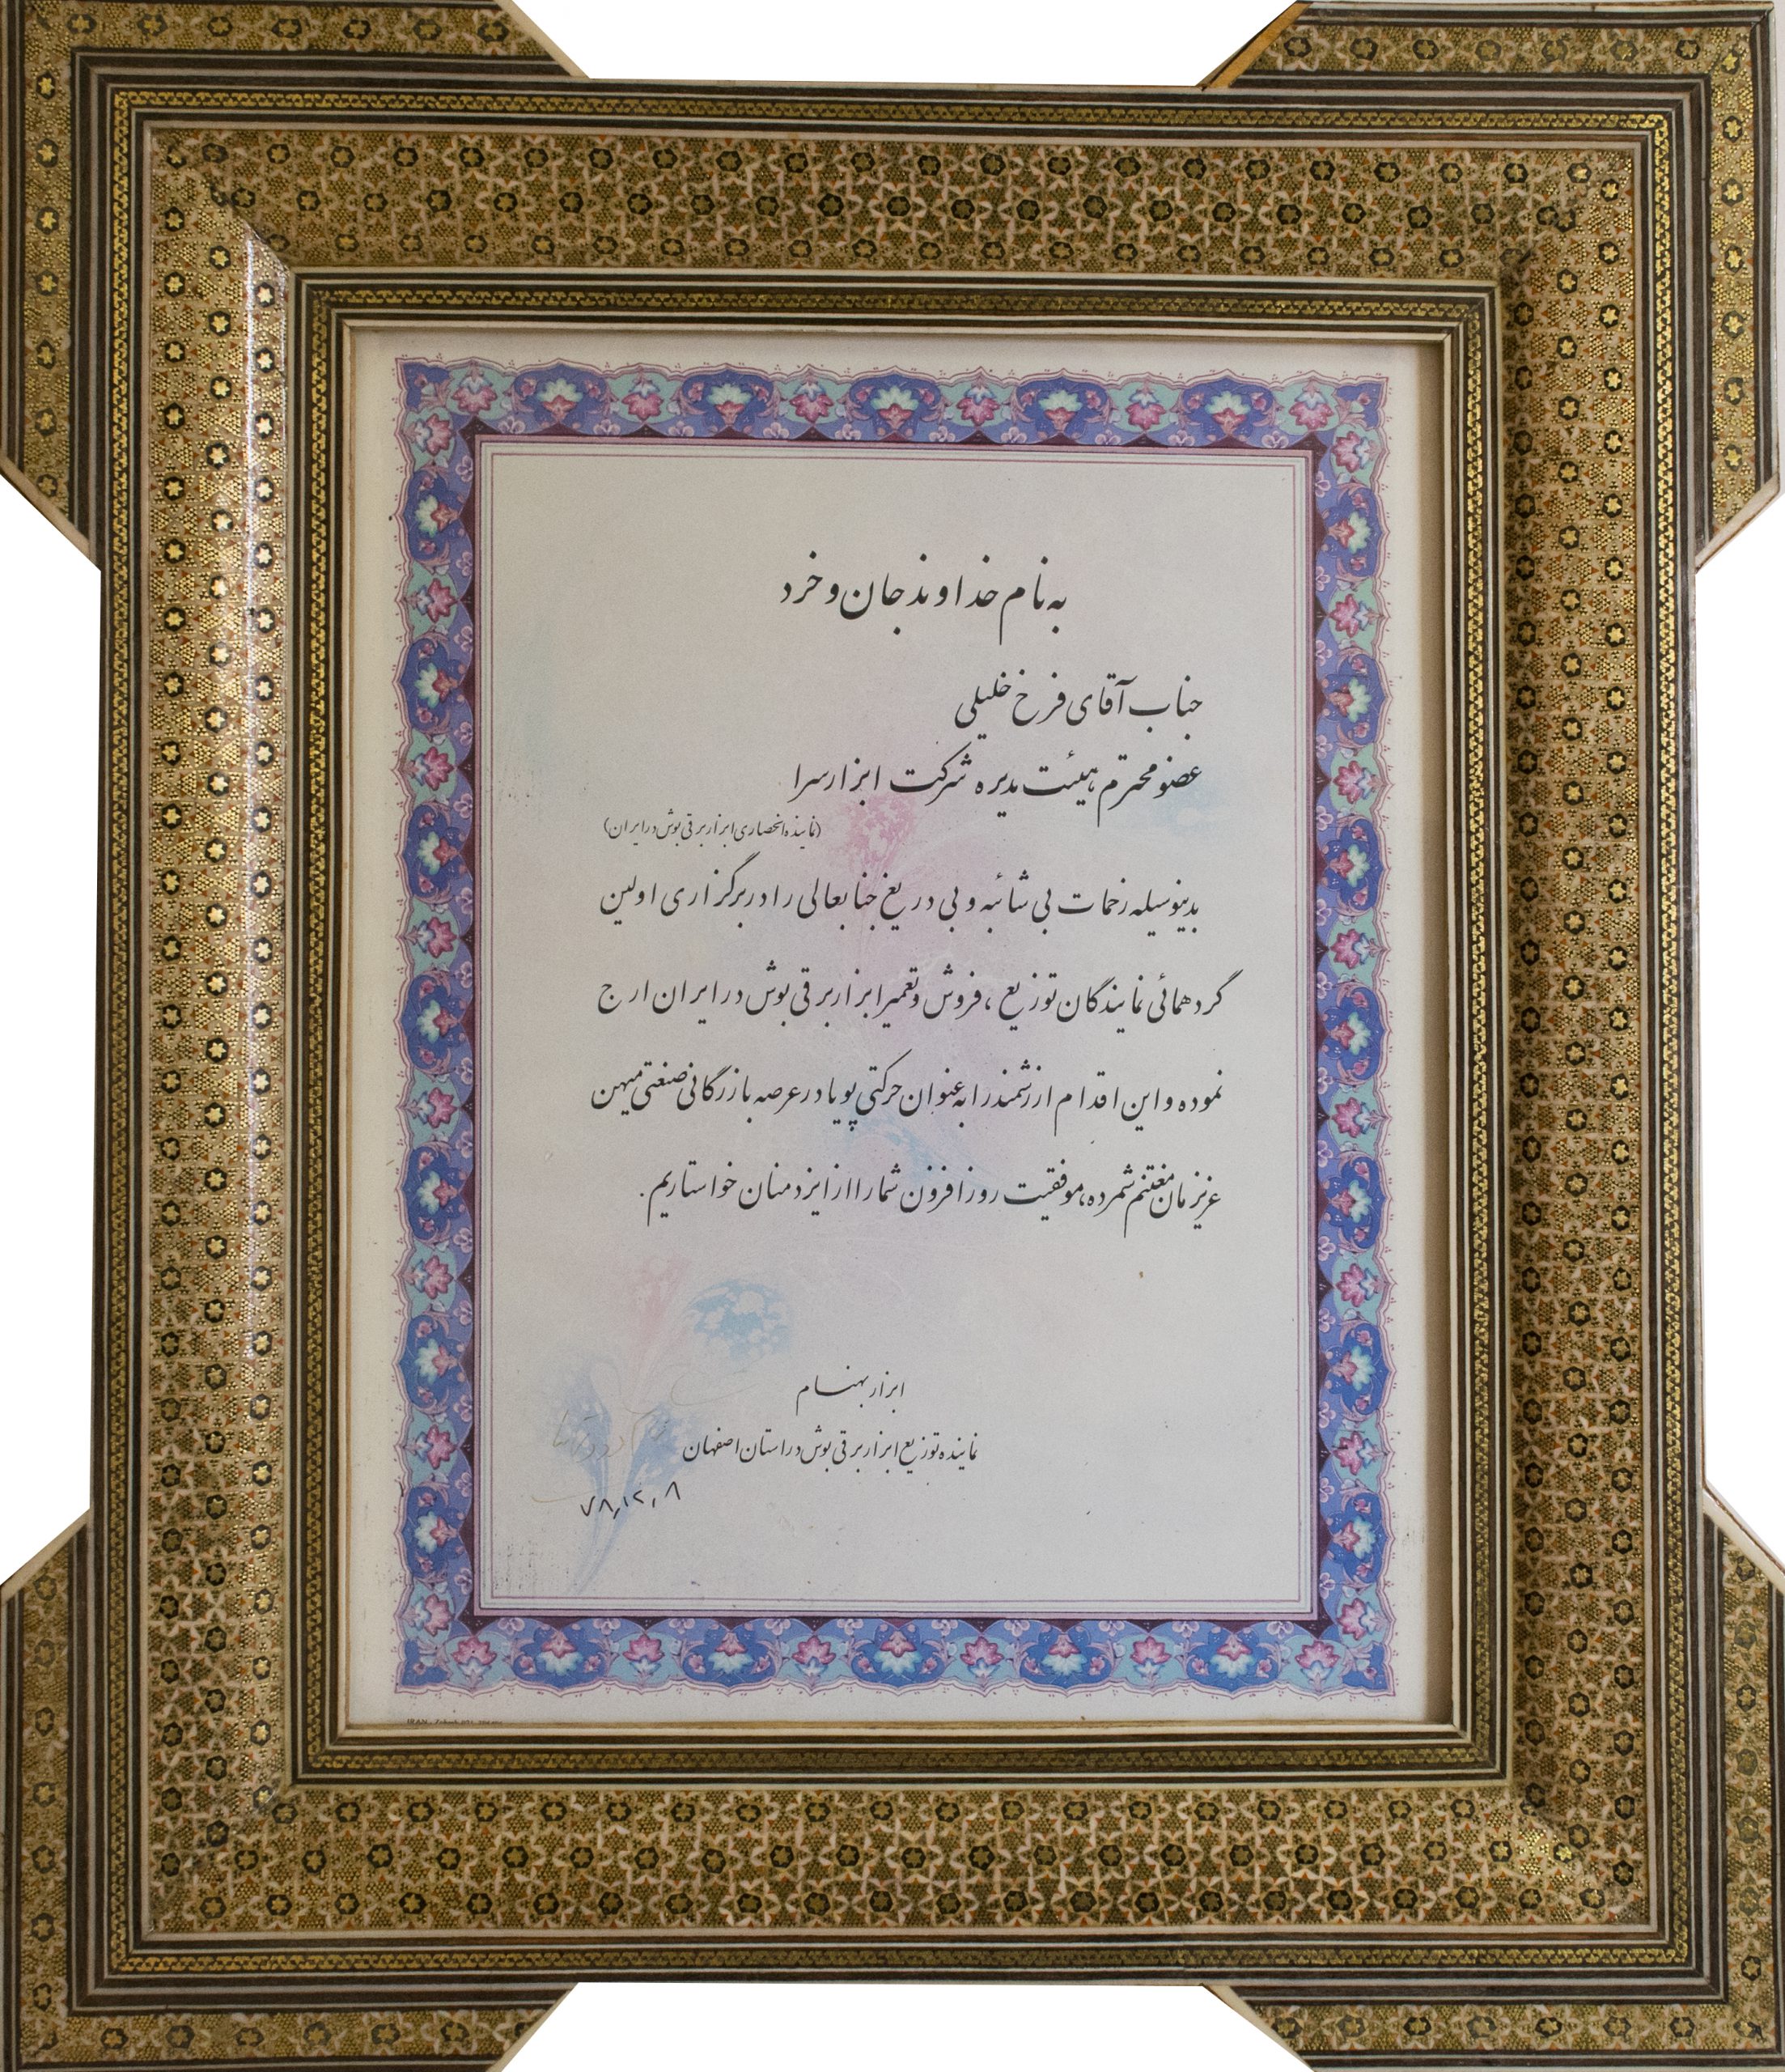 به نام خداوند جان و خرد
جناب آقای فرخ خلیلی
عضو محترم هیئت مدیره شرکت ابزارسرا
(نماینده انحصاری ابزار برقی بوش در ایران)
بدینوسیله زحمات بی شائبه و بی دریغ جنابعالی را در برگزاری اولین
گردهمائی نمایندگان توزیع، فروش و تعمیر ابزار برقی بوش در ایران ارج
نموده و این اقدام ارزشمند را به عنوان حرکتی پویا در عرصه بازرگانی صنعتی میهن
عزیزمان مغتنم شمرده، موفقیت روز افزون شما را از ایزد منان خواستاریم.
ابزار بهنام
نماینده توزیع ابزار برقی بوش در استان اصفهان
۷۸،۱۲،۸
IRAN